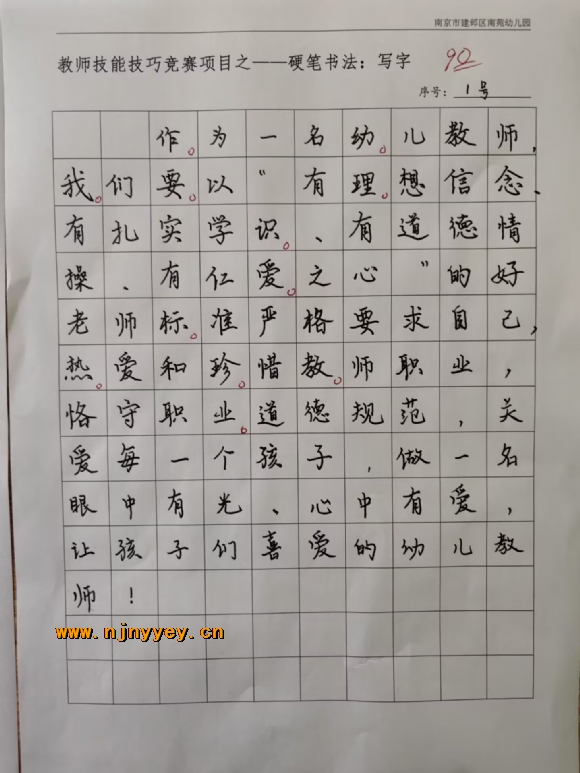 南京市建邺区南苑幼儿园
教师技能技巧竞赛项目之——硬笔书法：写字 90
序号：1号
作为一名幼儿教师，
我们要以“有理想信念、
有扎实学识、有道德情
操、有仁爱之心”的好
老师标准严格要求自己，
热爱和珍惜教师职业，
恪守职业道德规范，关
爱每一个孩子，做一名
眼中有光、心中有爱，
让孩子们喜爱的幼儿教
师！
www.njnyyey.cn